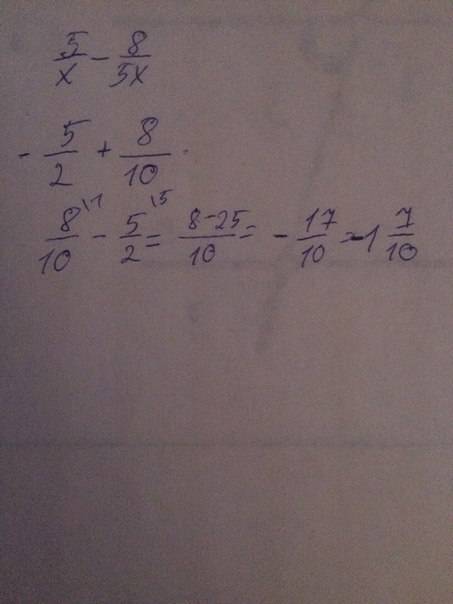 5/x - 8/5x
- 5/2 + 8/10 .
8/10 \1 - 5/2 \5 = 8-25/10 = - 17/10 = -1 7/10